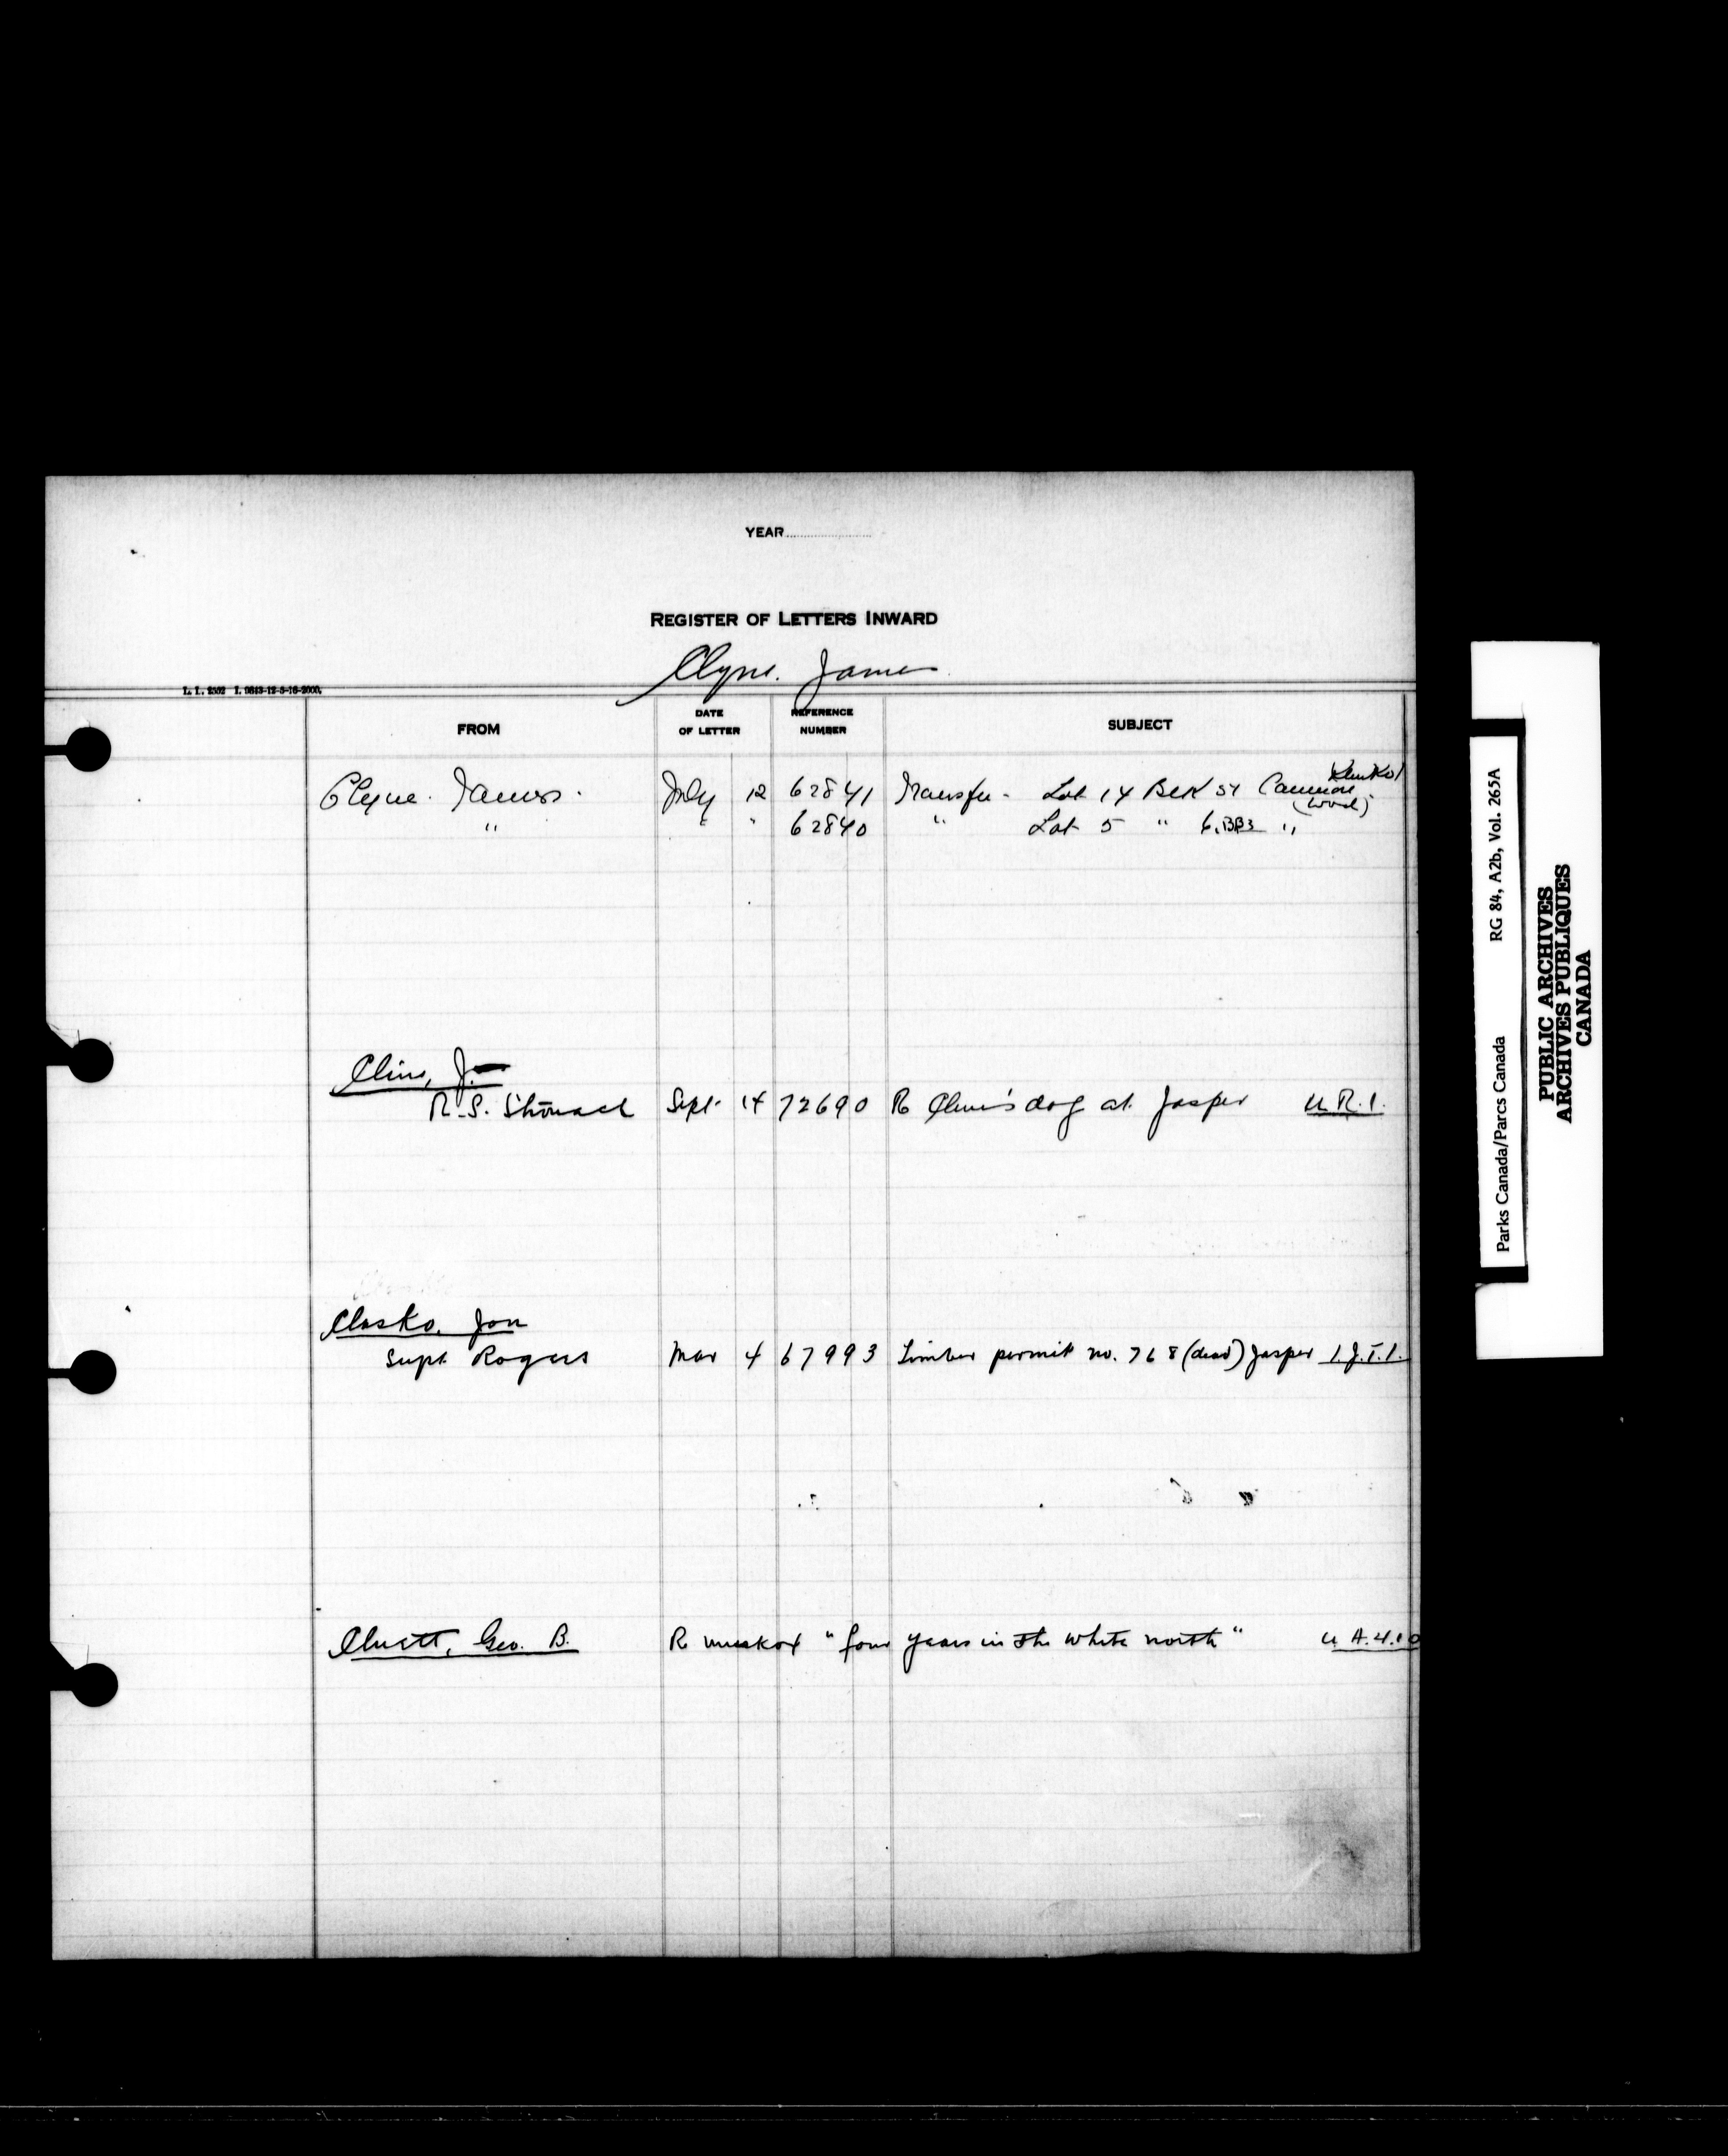 YEAR
REGISTER OF LETTERS INWARD
Clyne. James
L. I. 2502 I. 9643-12-5-16-2000.
FROM DATE OF LETTER REFERENCE NUMBER SUBJECT
Clyne. James. July 12 62841 Transfer - Lot 14 Blk 54 Canmore
(Wood)
" " " 62840 " Lot 5 " 6, BB3 "
Cline, J.
R. S. Stronach Sept. 14 72690 R Cline's dog at Jasper U.R.1.
Clusko, Jon
Supt Rogers Mar 4 67993 Timber permit no. 768 (dead) Jasper 1.J.T.1.
Cluett, Geo. B. R muskox "four years in the white north" U.A.4.10
Parks Canada/Parcs Canada RG 84, A2b, Vol. 265A
PUBLIC ARCHIVES
ARCHIVES PUBLIQUES
CANADA